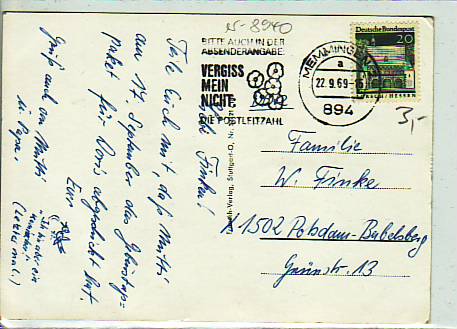 W-8940
BITTE AUCH IN DER
ABSENDERANGABE:
VERGISS
MEIN
NICHT:
DIE POSTLEITZAHL
MEMMINGEN
a
22.9.69-15
894
Deutsche Bundespost
20
LORSCH/HESSEN
3,-
Liebe Finkes!
Teile Euch mit, daß Mutti
am 17. September das Geburtstags-
paket für Doris abgeschickt hat.
Euer
Gruß auch von Mutti
u. Papa.
(letztes mal.)
Familie
W. Finke
X 1502 Potsdam-Babelsberg
Grünstr. 13